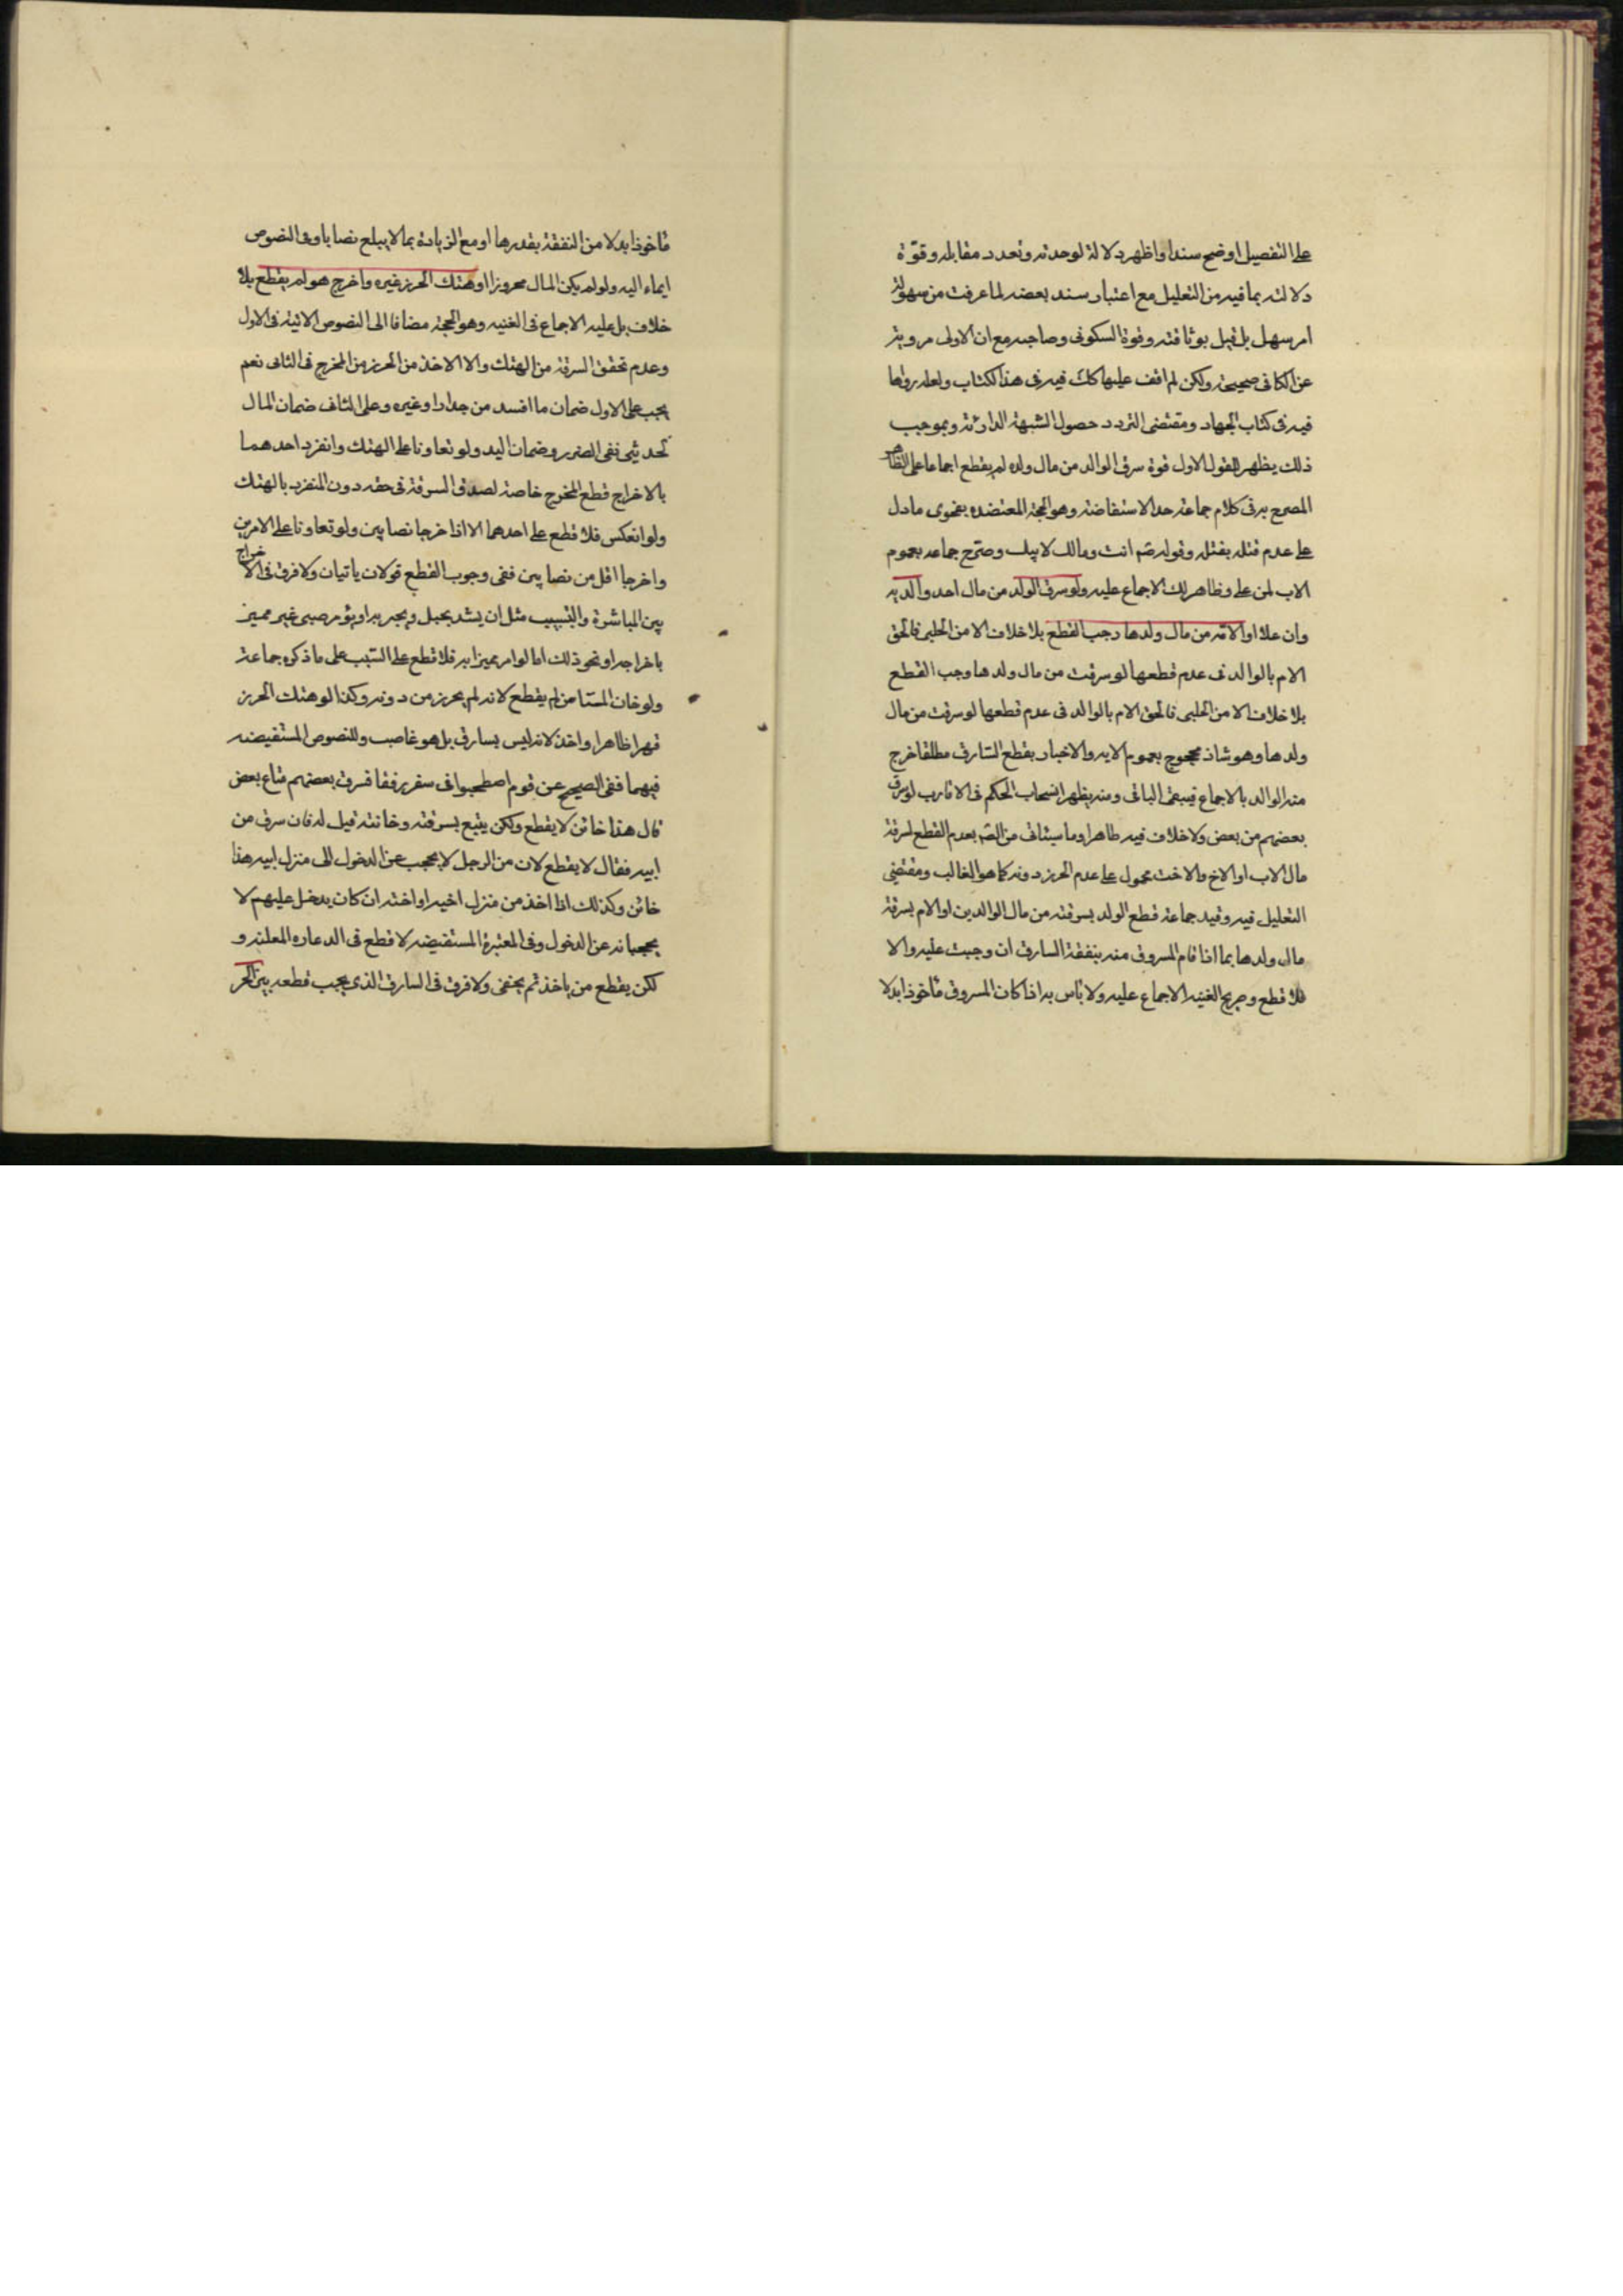 على التفصيل اوضح سندا واظهر دلالة لوحدته وتعدد مقابله وقوّة
دلالته بما فيه من التعليل مع اعتبار سند بعضه لما عرفت من سهولة
امر سهل بل قيل بوثاقته وقوة السكونى وصاحبه مع ان الاولى مروية
عن الكافى صحيحة ولكن لم اقف عليها كك فيه فى هذا الكتاب ولعله رواها
فيه فى كتاب الجهاد ومقتضى التردد حصول الشبهة الدارئة وبموجب
ذلك يظهر للقول الاول قوة سرق الوالد من مال ولده لم يقطع اجماعا على الظاهر
المصرح به فى كلام جماعة حد الاستفاضة وهو الحجة المعتضده بفحوى ما دل
على عدم قتله بقتله وقوله صم انت ومالك لابيك وصرّح جماعه بعموم
الاب لمن على وظاهر لك الاجماع عليه ولو سرق الولد من مال احد والديه
وان علا او الامّ من مال ولدها وجب القطع بلا خلاف الا من الحلبى فالحق
الام بالوالد فى عدم قطعها لو سرقت من مال ولدها وجب القطع
بلا خلاف الا من الحلبى فالحق الام بالوالد فى عدم قطعها لو سرقت من مال
ولدها وهو شاذ محجوج بعموم الايه والاخبار بقطع السّارق مطلقا خرج
منه الوالد بالاجماع فيبقى الباقى ومنه يظهر انسحاب الحكم فى الاقارب لو سرق
بعضهم من بعض ولا خلاف فيه ظاهرا وما سيئاتى من النصّ بعدم القطع لسرقة
مال الاب او الاخ والاخت محمول على عدم الحرز دونه كما هو الغالب ومقتضى
التعليل فيه وقيد جماعة قطع الولد بسرقته من مال الوالدين او الام بسرقة
مال ولدها بما اذا قام المسروق منه بنفقة السارق ان وجبت عليه والا
فلا قطع وصريح الغنيه الاجماع عليه ولا باس به اذا كان المسروق ماخوذا بدلا
ماخوذا بدلا من النفقة بقدرها او مع الزيادة بما لا يبلغ نصابا وفى النصوص
ايماء اليه ولو لم يكن المال محروزا او هتك الحرز غيره واخرج هو لم يقطع بلا
خلاف بل عليه الاجماع فى الغنيه وهو الحجة مضافا الى النصوص الاتية فى الاول
وعدم تحقق السرقة من الهتك والا الاخذ من الحرز من المخرج فى الثانى نعم
يجب على الاول ضمان ما افسد من جدار او غيره وعلى الثانى ضمان المال
لحديثى نفى الضرر وضمان اليد ولو تعاونا على الهتك وانفرد احدهما
بالاخراج قطع المخرج خاصة لصدق السرقة فى حقه دون المنفرد بالهتك
ولو انعكس فلا قطع على احدهما الا اذا خرجا نصابين ولو تعاونا على الامرين
واخرجا اقل من نصابين ففى وجوب القطع قولان ياتيان ولا فرق فى الاخراج
بين المباشرة والتسبيب مثل ان يشد بحبل ويجر به او يؤمر صبى غير مميز
باخراجه او نحو ذلك اما لو امر مميزا به فلا قطع على السّبب على ما ذكره جماعة
ولو خان المستامن لم يقطع لانه لم يحرز من دونه وكذا لو هتك الحرز
قهرا ظاهرا واخذ لانه ليس بسارق بل هو غاصب وللنصوص المستفيضه
فيهما ففى الصيح عن قوم اصطحبوا فى سفر رفقا فسرق بعضهم متاع بعض
قال هذا خائن لا يقطع ولكن يتبع بسرقته وخانته قيل له فان سرق من
ابيه فقال لا يقطع لان من الرجل لا يحجب عن الدخول الى منزل ابيه هذا
خائن وكذلك اذا اخذ من منزل اخيه او اخته ان كان يدخل عليهم لا
يحجبانه عن الدخول وفى المعتبرة المستفيضه لا قطع فى الدعاره المعلنه و
لكن يقطع من ياخذ ثم يخفى ولا فرق فى السارق الذى يجب قطعه بين الحر